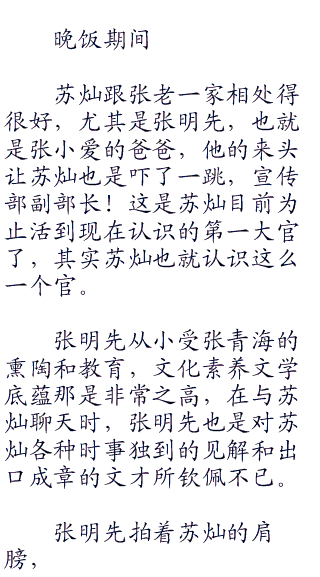 晚饭期间
苏灿跟张老一家相处得
很好，尤其是张明先，也就
是张小爱的爸爸，他的来头
让苏灿也是吓了一跳，宣传
部副部长！这是苏灿目前为
止活到现在认识的第一大官
了，其实苏灿也就认识这么
一个官。
张明先从小受张青海的
熏陶和教育，文化素养文学
底蕴那是非常之高，在与苏
灿聊天时，张明先也是对苏
灿各种时事独到的见解和出
口成章的文才所钦佩不已。
张明先拍着苏灿的肩
膀，